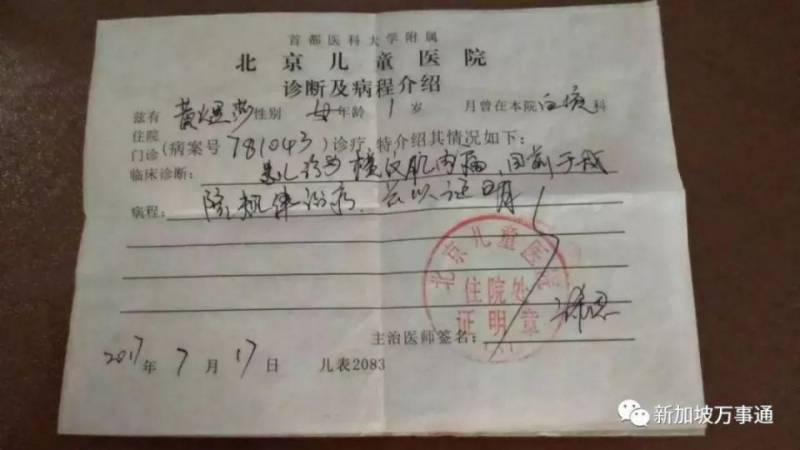 首都医科大学附属
北京儿童医院
诊断及病程介绍
兹有 黄煜莎 性别 女 年龄 1 岁 月曾在本院 血液 科
住院
门诊 (病案号 781043) 诊疗,特介绍其情况如下:
临床诊断: 患儿诊为横纹肌肉瘤,目前于我
病程: 院规律治疗,兹以证明
北京儿童医院
住院处
证明章
主治医师签名:
2017 年 7 月 17 日 儿表2083
新加坡万事通